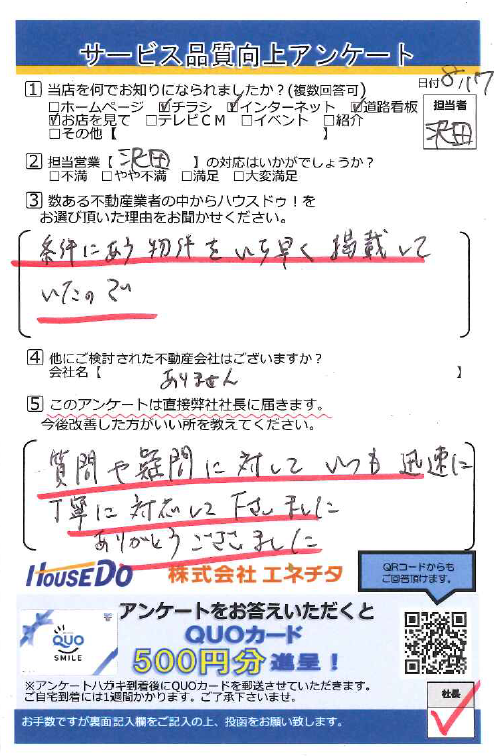 サービス品質向上アンケート
日付 8/17
1 当店を何でお知りになられましたか？(複数回答可)
□ホームページ ☑チラシ ☑インターネット ☑道路看板
☑お店を見て □テレビCM □イベント □紹介
□その他【 】
担当者
沢田
2 担当営業【 沢田 】の対応はいかがでしょうか？
□不満 □やや不満 □満足 □大変満足
3 数ある不動産業者の中からハウスドゥ！を
お選び頂いた理由をお聞かせください。
条件にあう物件をいち早く掲載して
いたので
4 他にご検討された不動産会社はございますか？
会社名【 ありません 】
5 このアンケートは直接弊社社長に届きます。
今後改善した方がいい所を教えてください。
質問や疑問に対していつも迅速に
丁寧に対応して下さいました
ありがとうございました
HOUSEDO 株式会社 エネチタ
QRコードからも
ご回答頂けます。
QUO
SMILE
アンケートをお答えいただくと
QUOカード
500円分進呈！
※アンケートハガキ到着後にQUOカードを郵送させていただきます。
ご自宅到着には1週間かかります。ご了承下さいませ。
社長
お手数ですが裏面記入欄をご記入の上、投函をお願い致します。